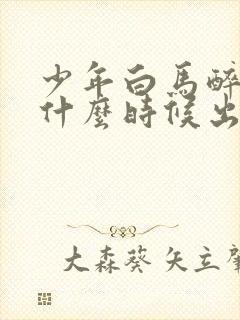 少年白馬醉
什麼時候出
大森葵 矢立肇